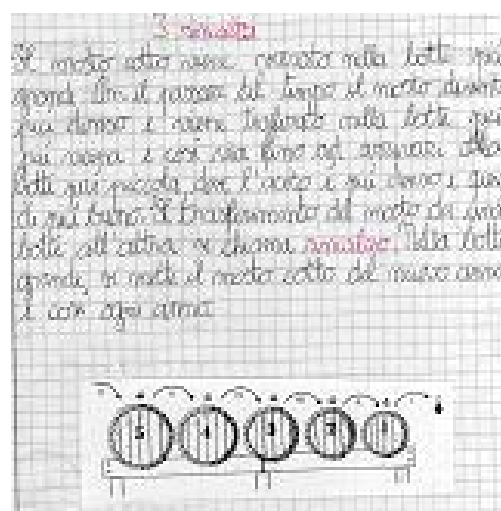 Il mosto cotto viene versato nella botte più
grande. Con il passare del tempo il mosto diventa
più denso e viene trasferito nella botte più
più e così via fino ad arrivare alla
botte più piccola, dove l'aceto è più denso e
di più buono. Il trasferimento del mosto da una
botte all'altra si chiama Nella botte
grande, si mette il mosto cotto del nuovo anno
e così ogni anno.
5 4 3 2 1